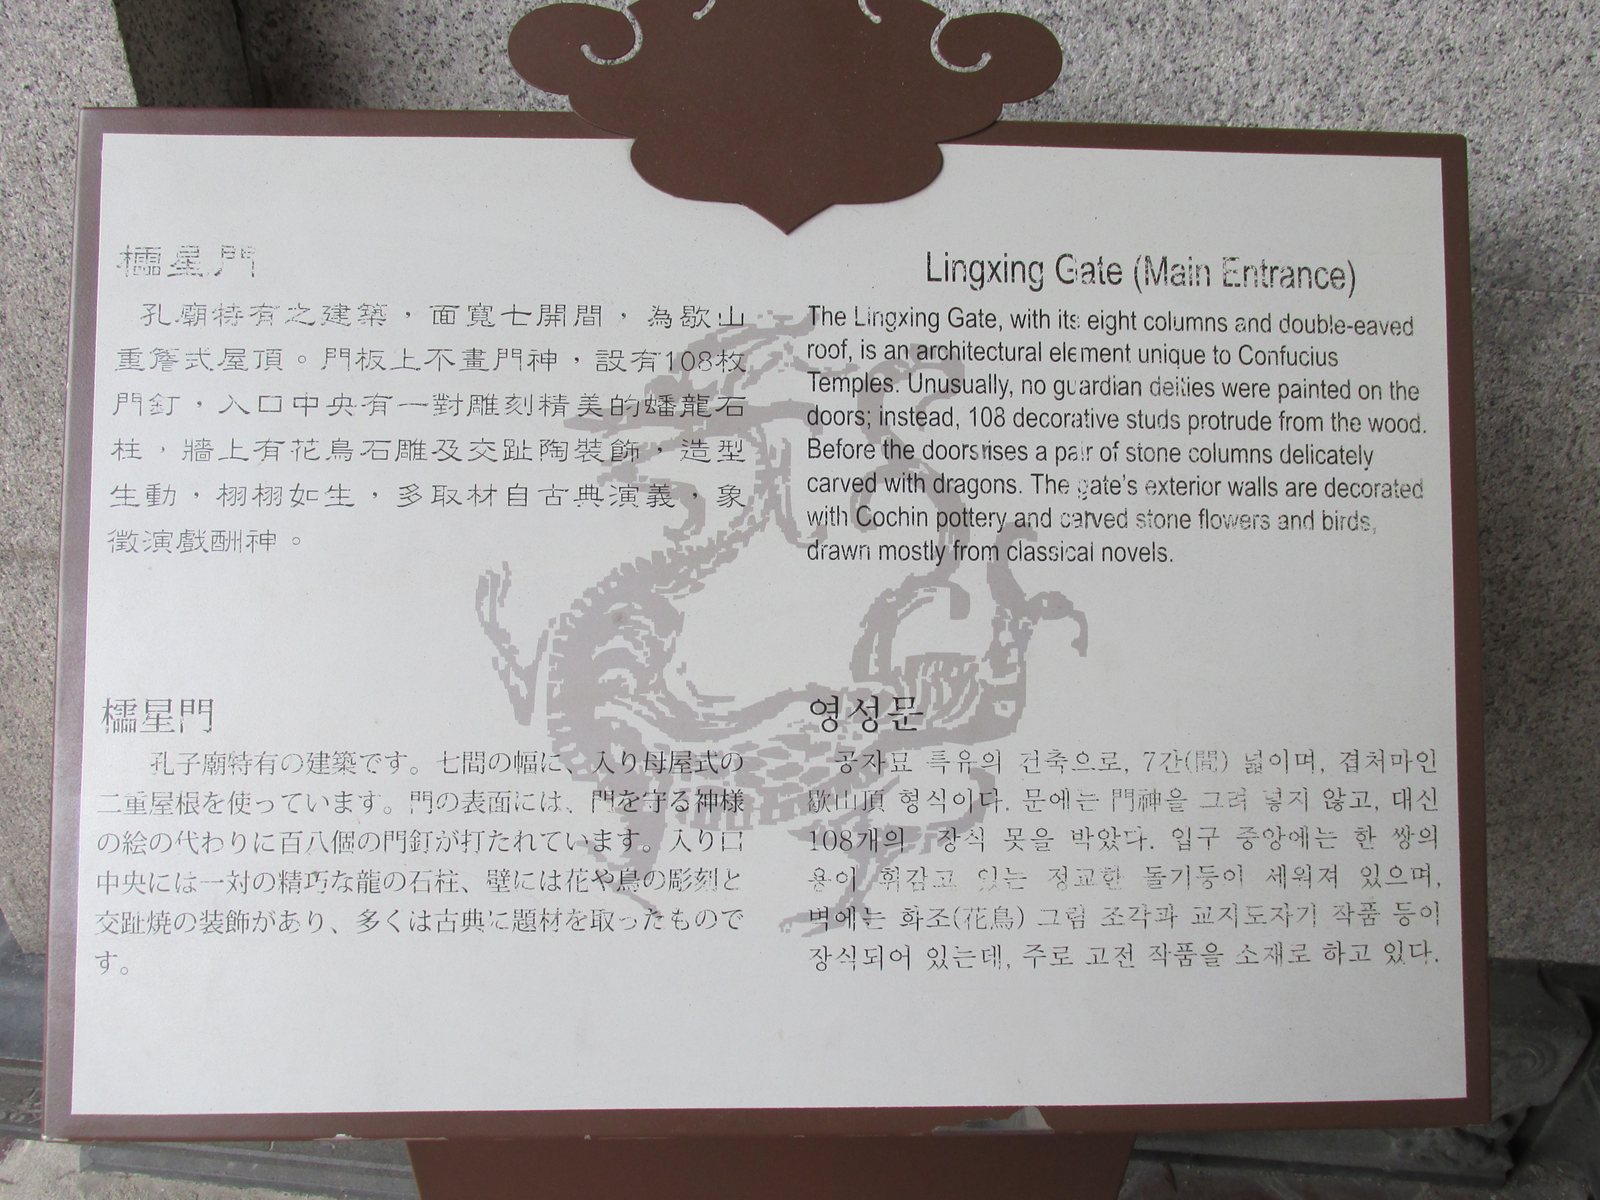 櫺星門
孔廟特有之建築，面寬七開間，為歇山
重簷式屋頂。門板上不畫門神，設有108枚
門釘，入口中央有一對雕刻精美的蟠龍石
柱，牆上有花鳥石雕及交趾陶裝飾，造型
生動，栩栩如生，多取材自古典演義，象
徵演戲酬神。
Lingxing Gate (Main Entrance)
The Lingxing Gate, with its eight columns and double-eaved
roof, is an architectural element unique to Confucius
Temples. Unusually, no guardian deities were painted on the
doors; instead, 108 decorative studs protrude from the wood.
Before the doors rises a pair of stone columns delicately
carved with dragons. The gate's exterior walls are decorated
with Cochin pottery and carved stone flowers and birds,
drawn mostly from classical novels.
櫺星門
孔子廟特有の建築です。七間の幅に、入り母屋式の
二重屋根を使っています。門の表面には、門を守る神様
の絵の代わりに百八個の門釘が打たれています。入り口
中央には一対の精巧な龍の石柱、壁には花や鳥の彫刻と
交趾焼の装飾があり、多くは古典に題材を取ったもので
す。
영성문
공자묘 특유의 건축으로, 7간(間) 넓이며, 겹처마인
歇山頂 형식이다. 문에는 門神을 그려 넣지 않고, 대신
108개의 장식 못을 박았다. 입구 중앙에는 한 쌍의
용이 휘감고 있는 정교한 돌기둥이 세워져 있으며,
벽에는 화조(花鳥) 그림 조각과 교지도자기 작품 등이
장식되어 있는데, 주로 고전 작품을 소재로 하고 있다.